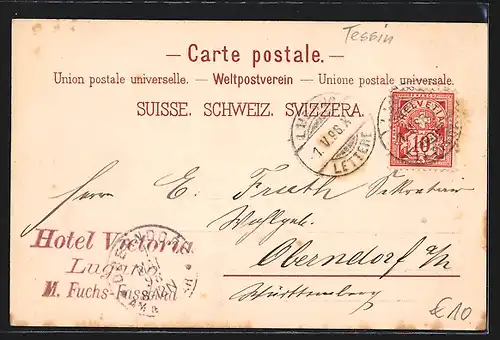 Tessin
– Carte postale. –
Union postale universelle. – Weltpostverein – Unione postale universale.
SUISSE. SCHWEIZ. SVIZZERA.
HELVETIA
10
1.V.96.X
LETTERE
Herrn E. Sekretair
Wohlgeb.
Oberndorf a/N
Württemberg
Hotel Victoria
Lugano
M. Fuchs-
€10